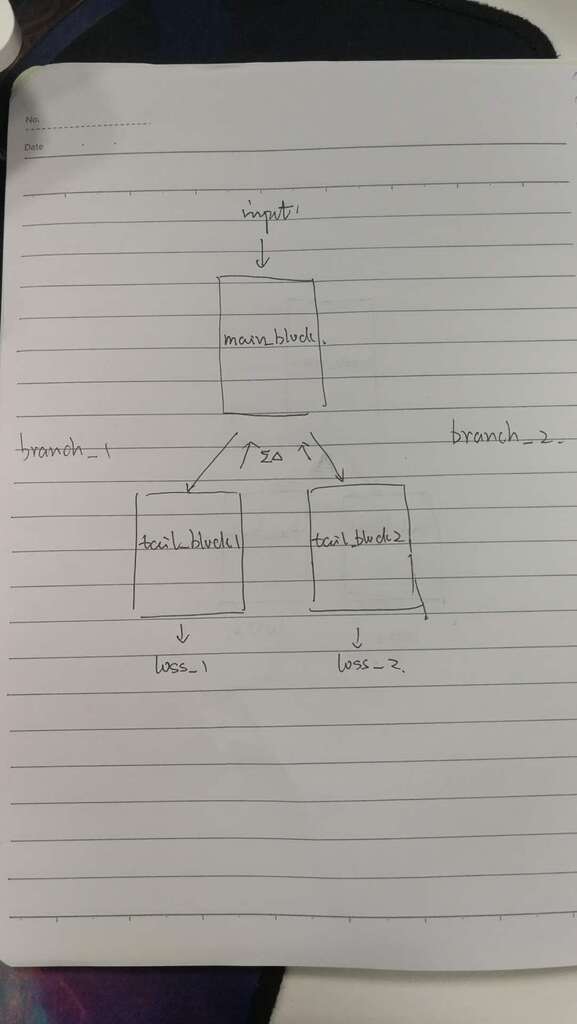 No.
Date
input
main_block.
branch_1
branch_2.
ΣΔ
tail_block1
tail_block2
loss_1
loss_2.